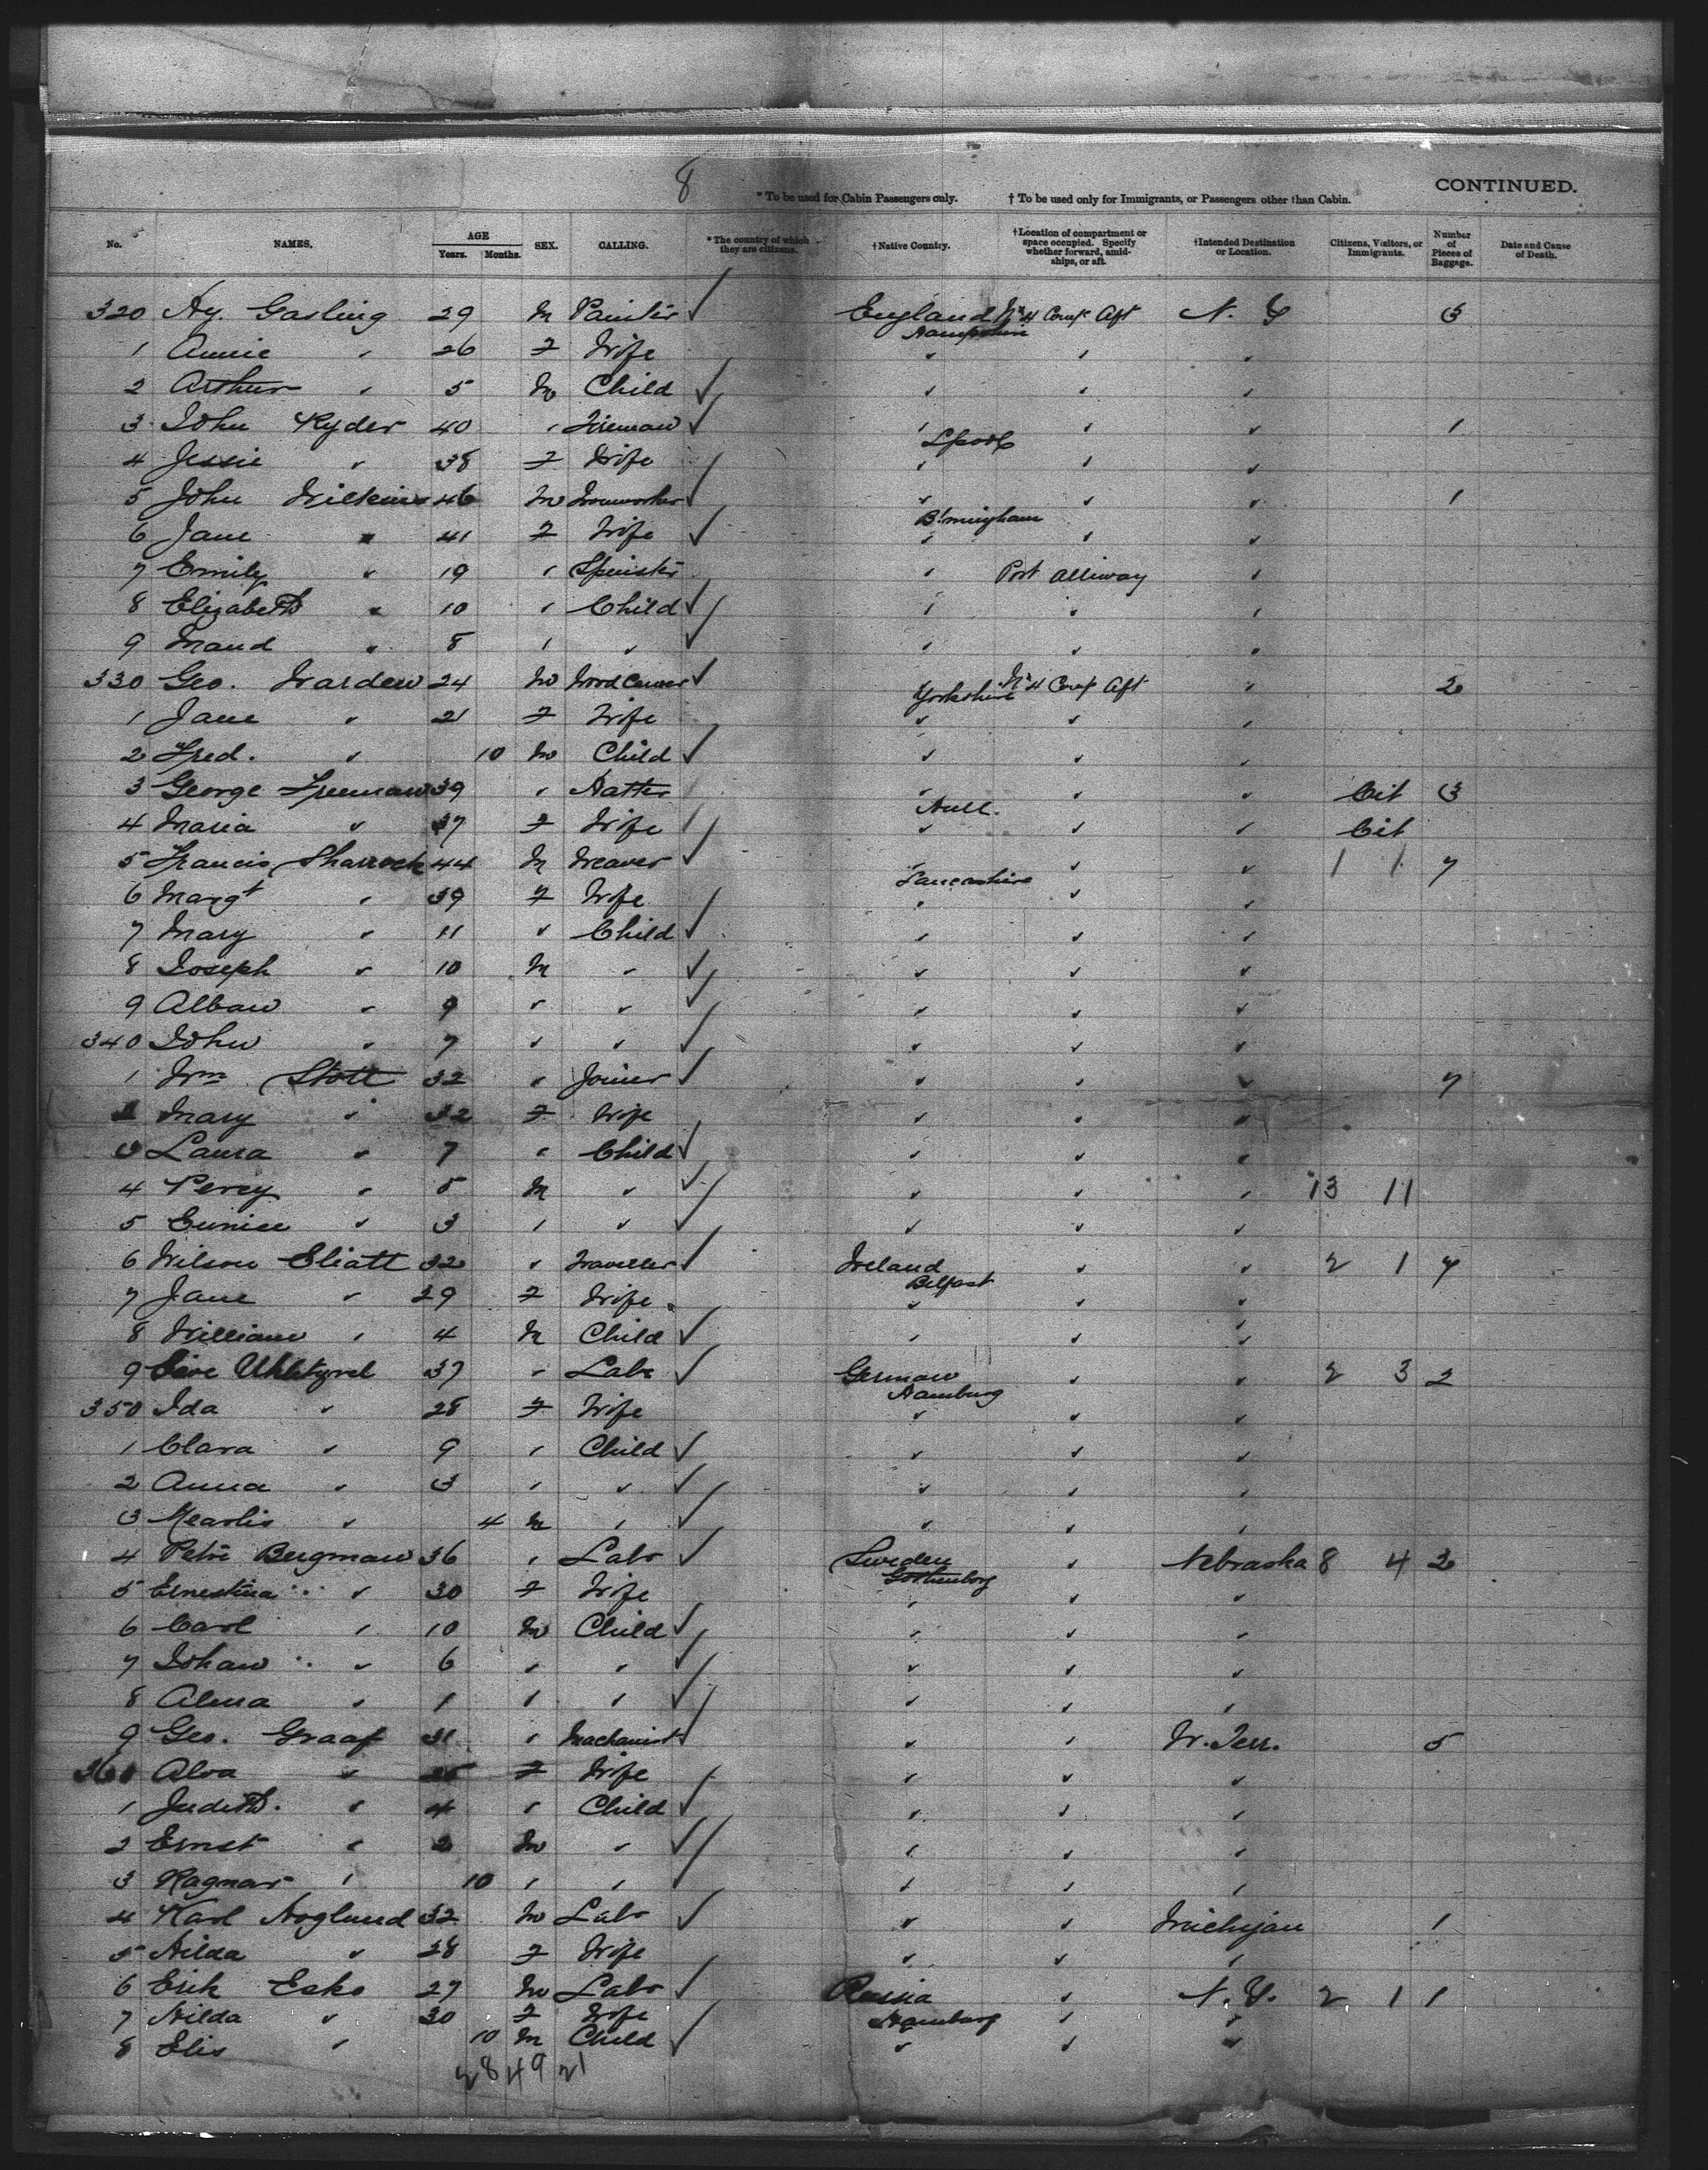 8
* To be used for Cabin Passengers only. † To be used only for Immigrants, or Passengers other than Cabin. CONTINUED.
No. NAMES. AGE Years. Months. SEX. CALLING. * The country of which they are citizens. † Native Country. † Location of compartment or space occupied. Specify whether forward, amidships, or aft. † Intended Destination or Location. Citizens, Visitors, or Immigrants. Number of Pieces of Baggage. Date and Cause of Death.
320 Hy. Gasling 29 M Painter ✓ England Hampshire No 4 Comp Aft N. Y 3
1 Annie " 26 F Wife " " "
2 Arthur " 5 M Child ✓ " " "
3 John Ryder 40 " Fireman ✓ " Lpool " " 1
4 Jessie " 38 F Wife " " "
5 John Wilkins 46 M Ironworker ✓ " B'mingham " " 1
6 Jane " 41 F Wife ✓ " " "
7 Emily " 19 " Spinster " Port Alliway "
8 Elizabeth " 10 " Child ✓ " " "
9 Maud " 8 " " ✓ " " "
330 Geo. Warden 24 M Wood Carver ✓ Yorkshire No 4 Comp Aft " 2
1 Jane " 21 F Wife " " "
2 Fred. " 10 M Child ✓ " " "
3 George Freeman 39 " Hatter " Hull. " " Cit 3
4 Maria " 37 F Wife " " " Cit
5 Francis Sharrock 44 M Weaver ✓ " Lancashire " " 1 1 7
6 Margt " 39 F Wife " " "
7 Mary " 11 " Child ✓ " " "
8 Joseph " 10 M " ✓ " " "
9 Alban " 9 " " ✓ " " "
340 John " 7 " " ✓ " " "
1 Wm Stott 32 " Joiner ✓ " " " 7
2 Mary " 32 F Wife " " "
3 Laura " 7 " Child ✓ " " "
4 Percy " 5 M " ✓ " " " 13 11
5 Eunice " 3 " " ✓ " " "
6 Wilson Eliatt 32 " Traveller ✓ Ireland Belfast " " 2 1 7
7 Jane " 29 F Wife " " "
8 William " 4 M Child ✓ " " "
9 37 " Labr ✓ German Hamburg " " 2 3 2
350 Ida " 28 F Wife " " "
1 Clara " 9 " Child ✓ " " "
2 Anna " 3 " " ✓ " " "
3 " 4 M " ✓ " " "
4 Petre Bergman 36 " Labr ✓ Sweden Gothenborg " Nebraska 8 4 2
5 Ernestina " 30 F Wife " " "
6 Carl " 10 M Child ✓ " " "
7 Johan " 6 " " ✓ " " "
8 Alma " 1 " " ✓ " " "
9 Geo. Graaf 31 " Machanist ✓ " " W. Terr. 5
360 Alva " 25 F Wife " " "
1 Judith. " 4 " Child ✓ " " "
2 Ernst " 2 M " ✓ " " "
3 Ragnar " 10 " " ✓ " " "
4 Karl Hoglund 32 M Labr ✓ " " Michigan 1
5 Hilda " 28 F Wife " " "
6 Erik Esko 27 M Labr ✓ Russia Hamburg " N. Y. 2 1 1
7 Hilda " 30 F Wife " "
8 Elis " 10 M Child ✓ " " "
28 49 21